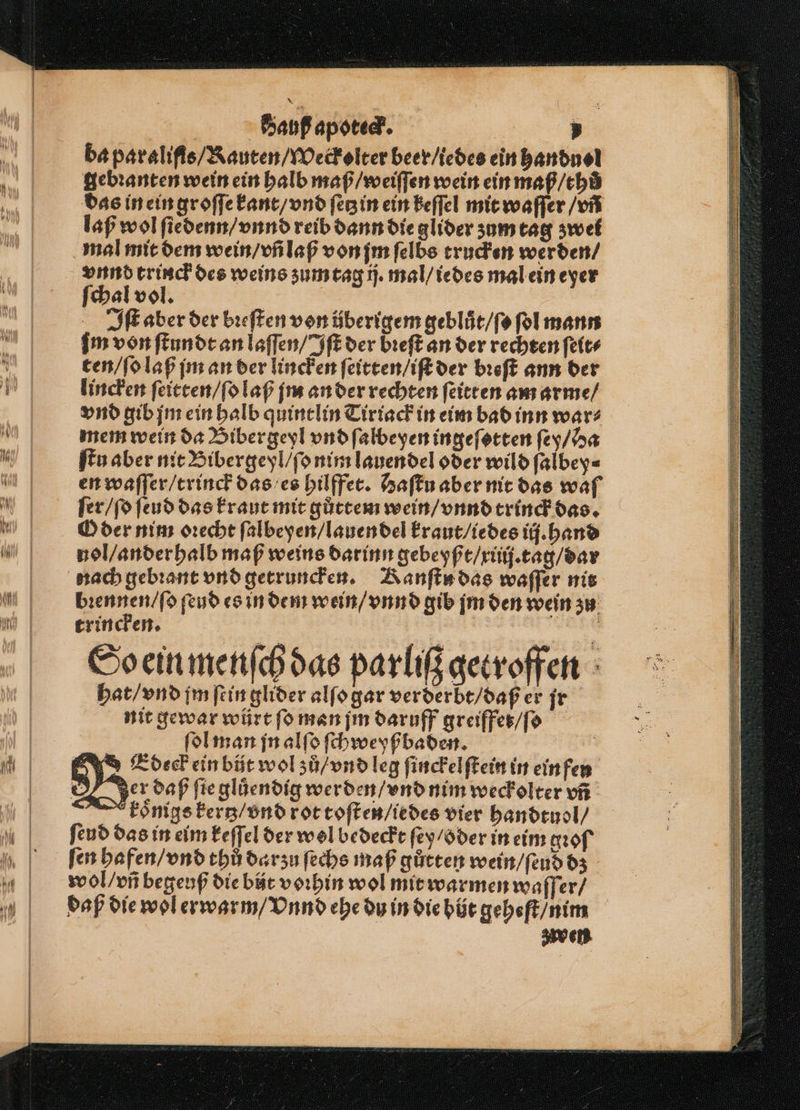 Hauß apoteck. v
ba paraliſis/Rauten/Weckolter beer/iedes ein handuol
gebꝛanten wein ein halb maß/weiſſen wein ein maß/thuͦ
das in ein groſſe kant/vnd ſetz in ein keſſel mit waſſer /vñ
laß wol ſiedenn/vnnd reib dann die glider zum tag zwei
mal mit dem wein/vñ laß von jm ſelbs trucken werden/
vnnd trinck des weins zum tag ij. mal/iedes mal ein eyer
ſchal vol.
Iſt aber der bꝛeſten von überigem gebluͤt/ſo ſol mann
jm von ſtundt an laſſen/Iſt der bꝛeſt an der rechten ſeit⸗
ten/ſo laß jm an der lincken ſeitten/iſt der bꝛeſt ann der
lincken ſeitten/ſo laß jm an der rechten ſeitten am arme/
vnd gib jm ein halb quintlin Tiriack in eim bad inn war⸗
mem wein da Bibergeyl vnd ſalbeyen ingeſotten ſey/Ha
ſtu aber nit Bibergeyl/ſo nim lauendel oder wild ſalbey⸗
en waſſer/trinck das es hilffet. Haſtu aber nit das waſ
ſer/ſo ſeud das kraut mit guͤttem wein/vnnd trinck das.
Oder nim oꝛecht ſalbeyen/lauendel kraut/iedes iij.hand
uol/anderhalb maß weins darinn gebeyßt/xiiij.tag/dar
nach gebꝛant vnd getruncken. Kanſtu das waſſer nit
bꝛennen/ſo ſeud es in dem wein/vnnd gib jm den wein zu
trincken.
So ein menſch das parliß getroffen
hat/vnd jm ſein glider alſo gar verderbt/daß er jr
nit gewar würt ſo man jm daruff greiffet/ſo
ſol man jn alſo ſchweyßbaden.
Edeck ein büt wol zuͦ/vnd leg ſinckelſtein in ein feu
er daß ſie gluͤendig werden/vnd nim weckolter vñ
koͤnigs kertz/vnd rot toſten/iedes vier handtuol/
ſeud das in eim keſſel der wol bedeckt ſey/oder in eim gꝛoſ
ſen hafen/vnd thuͦ darzu ſechs maß guͤtten wein/ſeud dz
wol/vñ begeuß die büt voꝛhin wol mit warmen waſſer/
daß die wol erwarm/Vnnd ehe du in die büt geheſt/nim
zwen